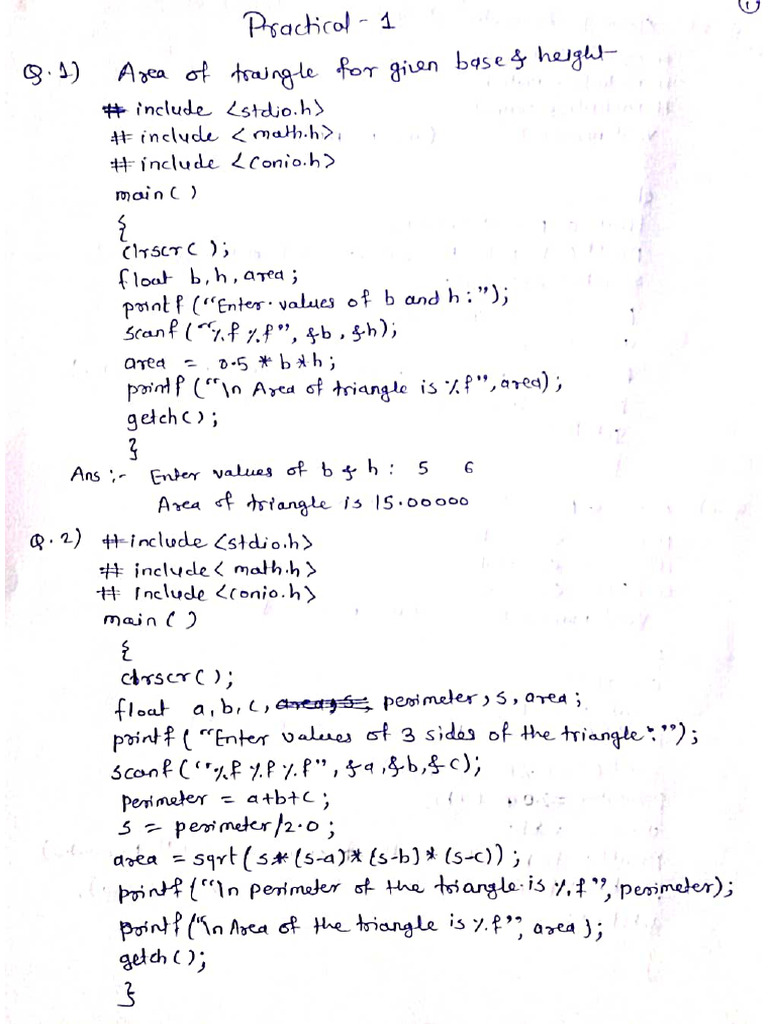 1
Practical - 1
Q.1) Area of traingle for given base & height
# include <stdio.h>
# include < math.h>
# include <conio.h>
main ( )
{
clrscr ( );
float b, h, area ;
printf ("Enter values of b and h :");
scanf ("%f %f", &b, &h);
area = 0.5 * b * h ;
printf ("\n Area of triangle is %f", area) ;
getch ( );
}
Ans :- Enter values of b & h : 5 6
Area of triangle is 15.00000
Q. 2) # include <stdio.h>
# include < math.h>
# Include <conio.h>
main ( )
{
clrscr ( );
float a, b, c, perimeter, s, area ;
printf ("Enter values of 3 sides of the triangle :");
scanf ("%f %f %f", &a, &b, &c);
perimeter = a+b+c ;
s = perimeter/2.0 ;
area = sqrt (s* (s-a)* (s-b)* (s-c)) ;
printf ("\n perimeter of the triangle is %f", perimeter);
printf ("\n Area of the triangle is %f", area );
getch ( );
}